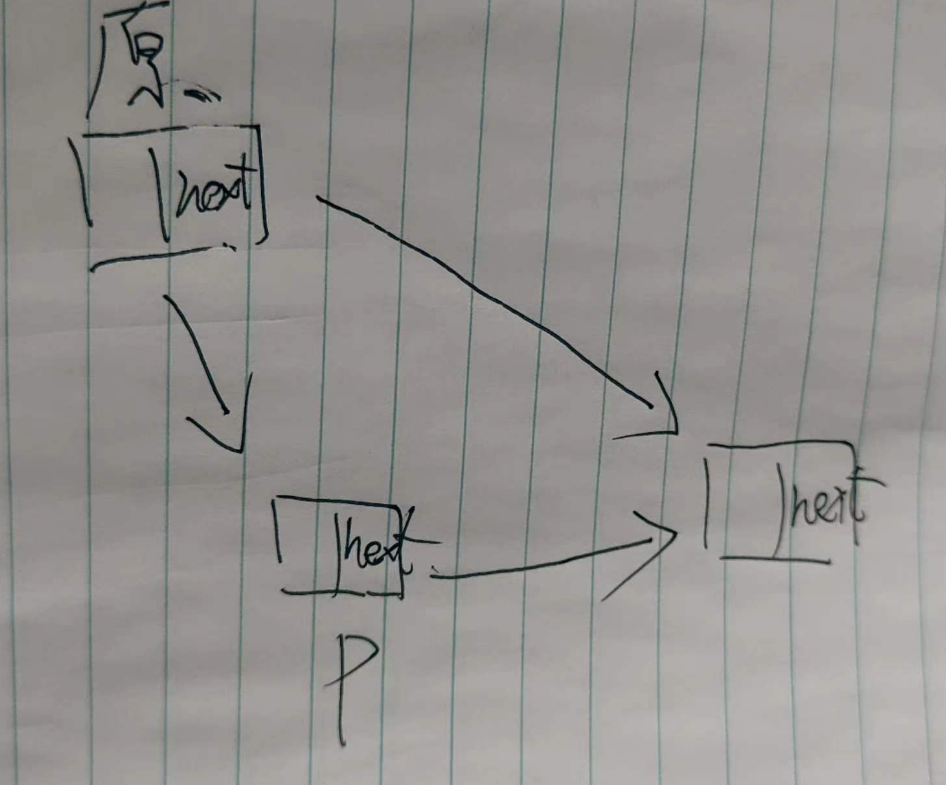 原
next
next
next
P